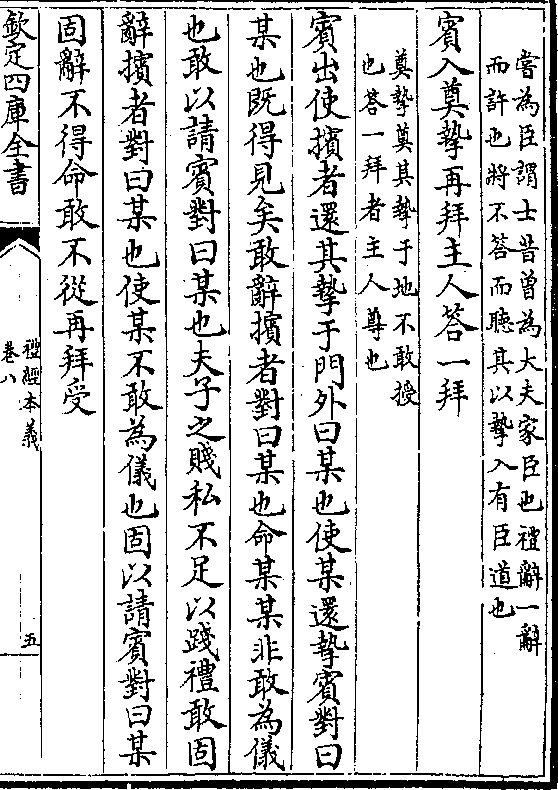 嘗為臣謂士昔曾為大夫家臣也禮辭一辭
而許也將不答而聽其以摯入有臣道也
賓入奠摯再拜主人答一拜
奠摯奠其摯于地不敢授
也答一拜者主人尊也
賓出使擯者還其摯于門外曰某也使某還摯賓對曰
某也既得見矣敢辭擯者對曰某也命某某非敢為儀
也敢以請賓對曰某也夫子之賤私不足以踐禮敢固
辭擯者對曰某也使某不敢為儀也固以請賓對曰某
固辭不得命敢不從再拜受
欽定四庫全書
禮經本義
卷八
五